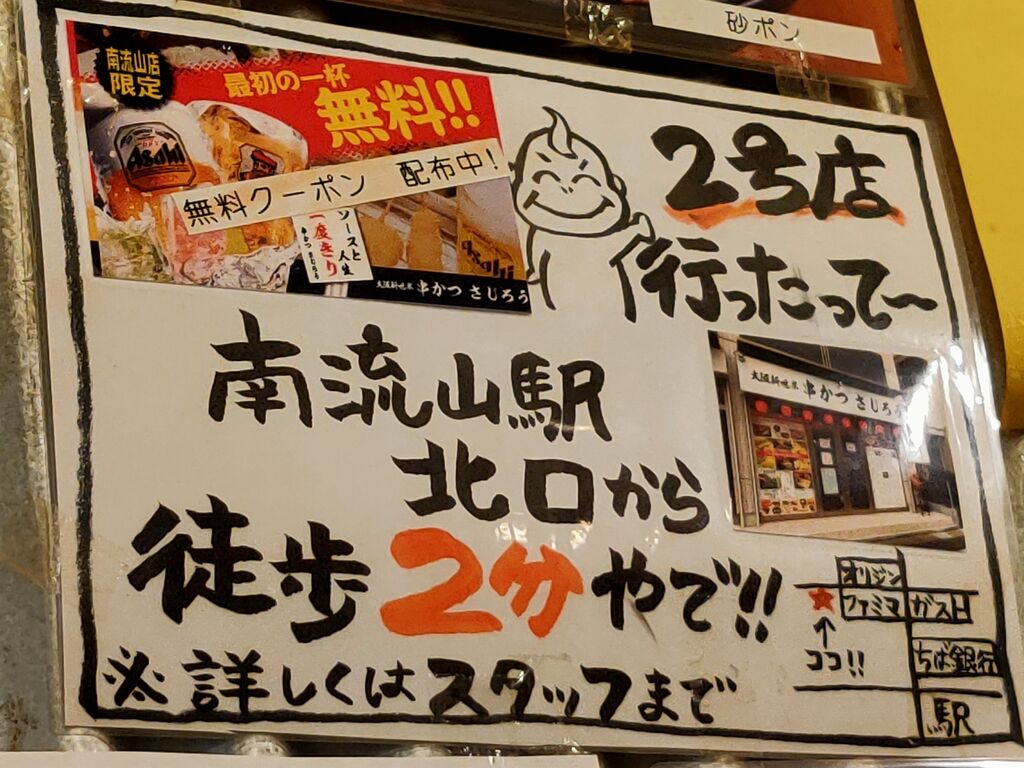 砂ポン
南流山店
限定
最初の一杯
無料!!
Asahi
無料クーポン 配布中!
ソースと人生
二度きり
串かつ さじろう
Asahi
大阪新世界 串かつ さじろう
2号店
行ったって〜
南流山駅
北口から
徒歩2分やで!!
※詳しくはスタッフまで
大阪新世界 串かつ さじろう
オリジン
ファミマ
ガスト
ココ!!
ちば銀行
駅